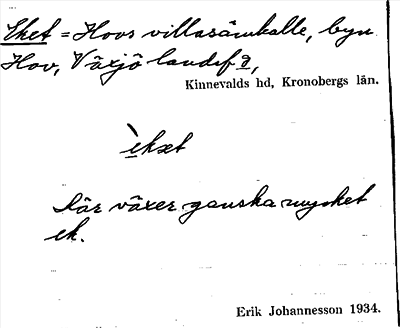 Eket = Hovs villasamhälle, byn
Hov, Växjö landsf g,
Kinnevalds hd, Kronobergs län.
èkæt
Där växer ganska mycket
ek.
Erik Johannesson 1934.